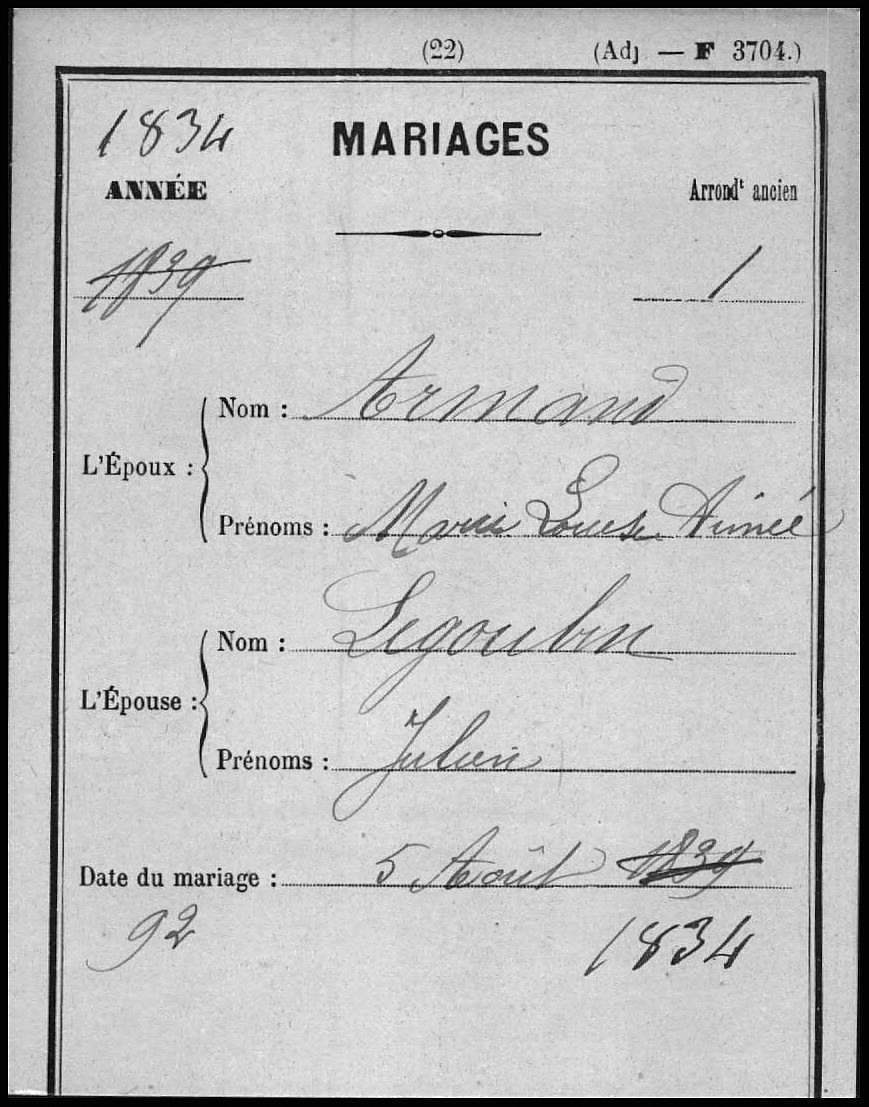 (22) (Adj — F 3704.)
1834 MARIAGES
ANNÉE Arrondt ancien
1839 1
Nom : Armand
L'Époux :
Prénoms : Marie Louise Aimée
Nom : Legoubin
L'Épouse :
Prénoms : Julien
Date du mariage : 5 Août 1839
92 1834